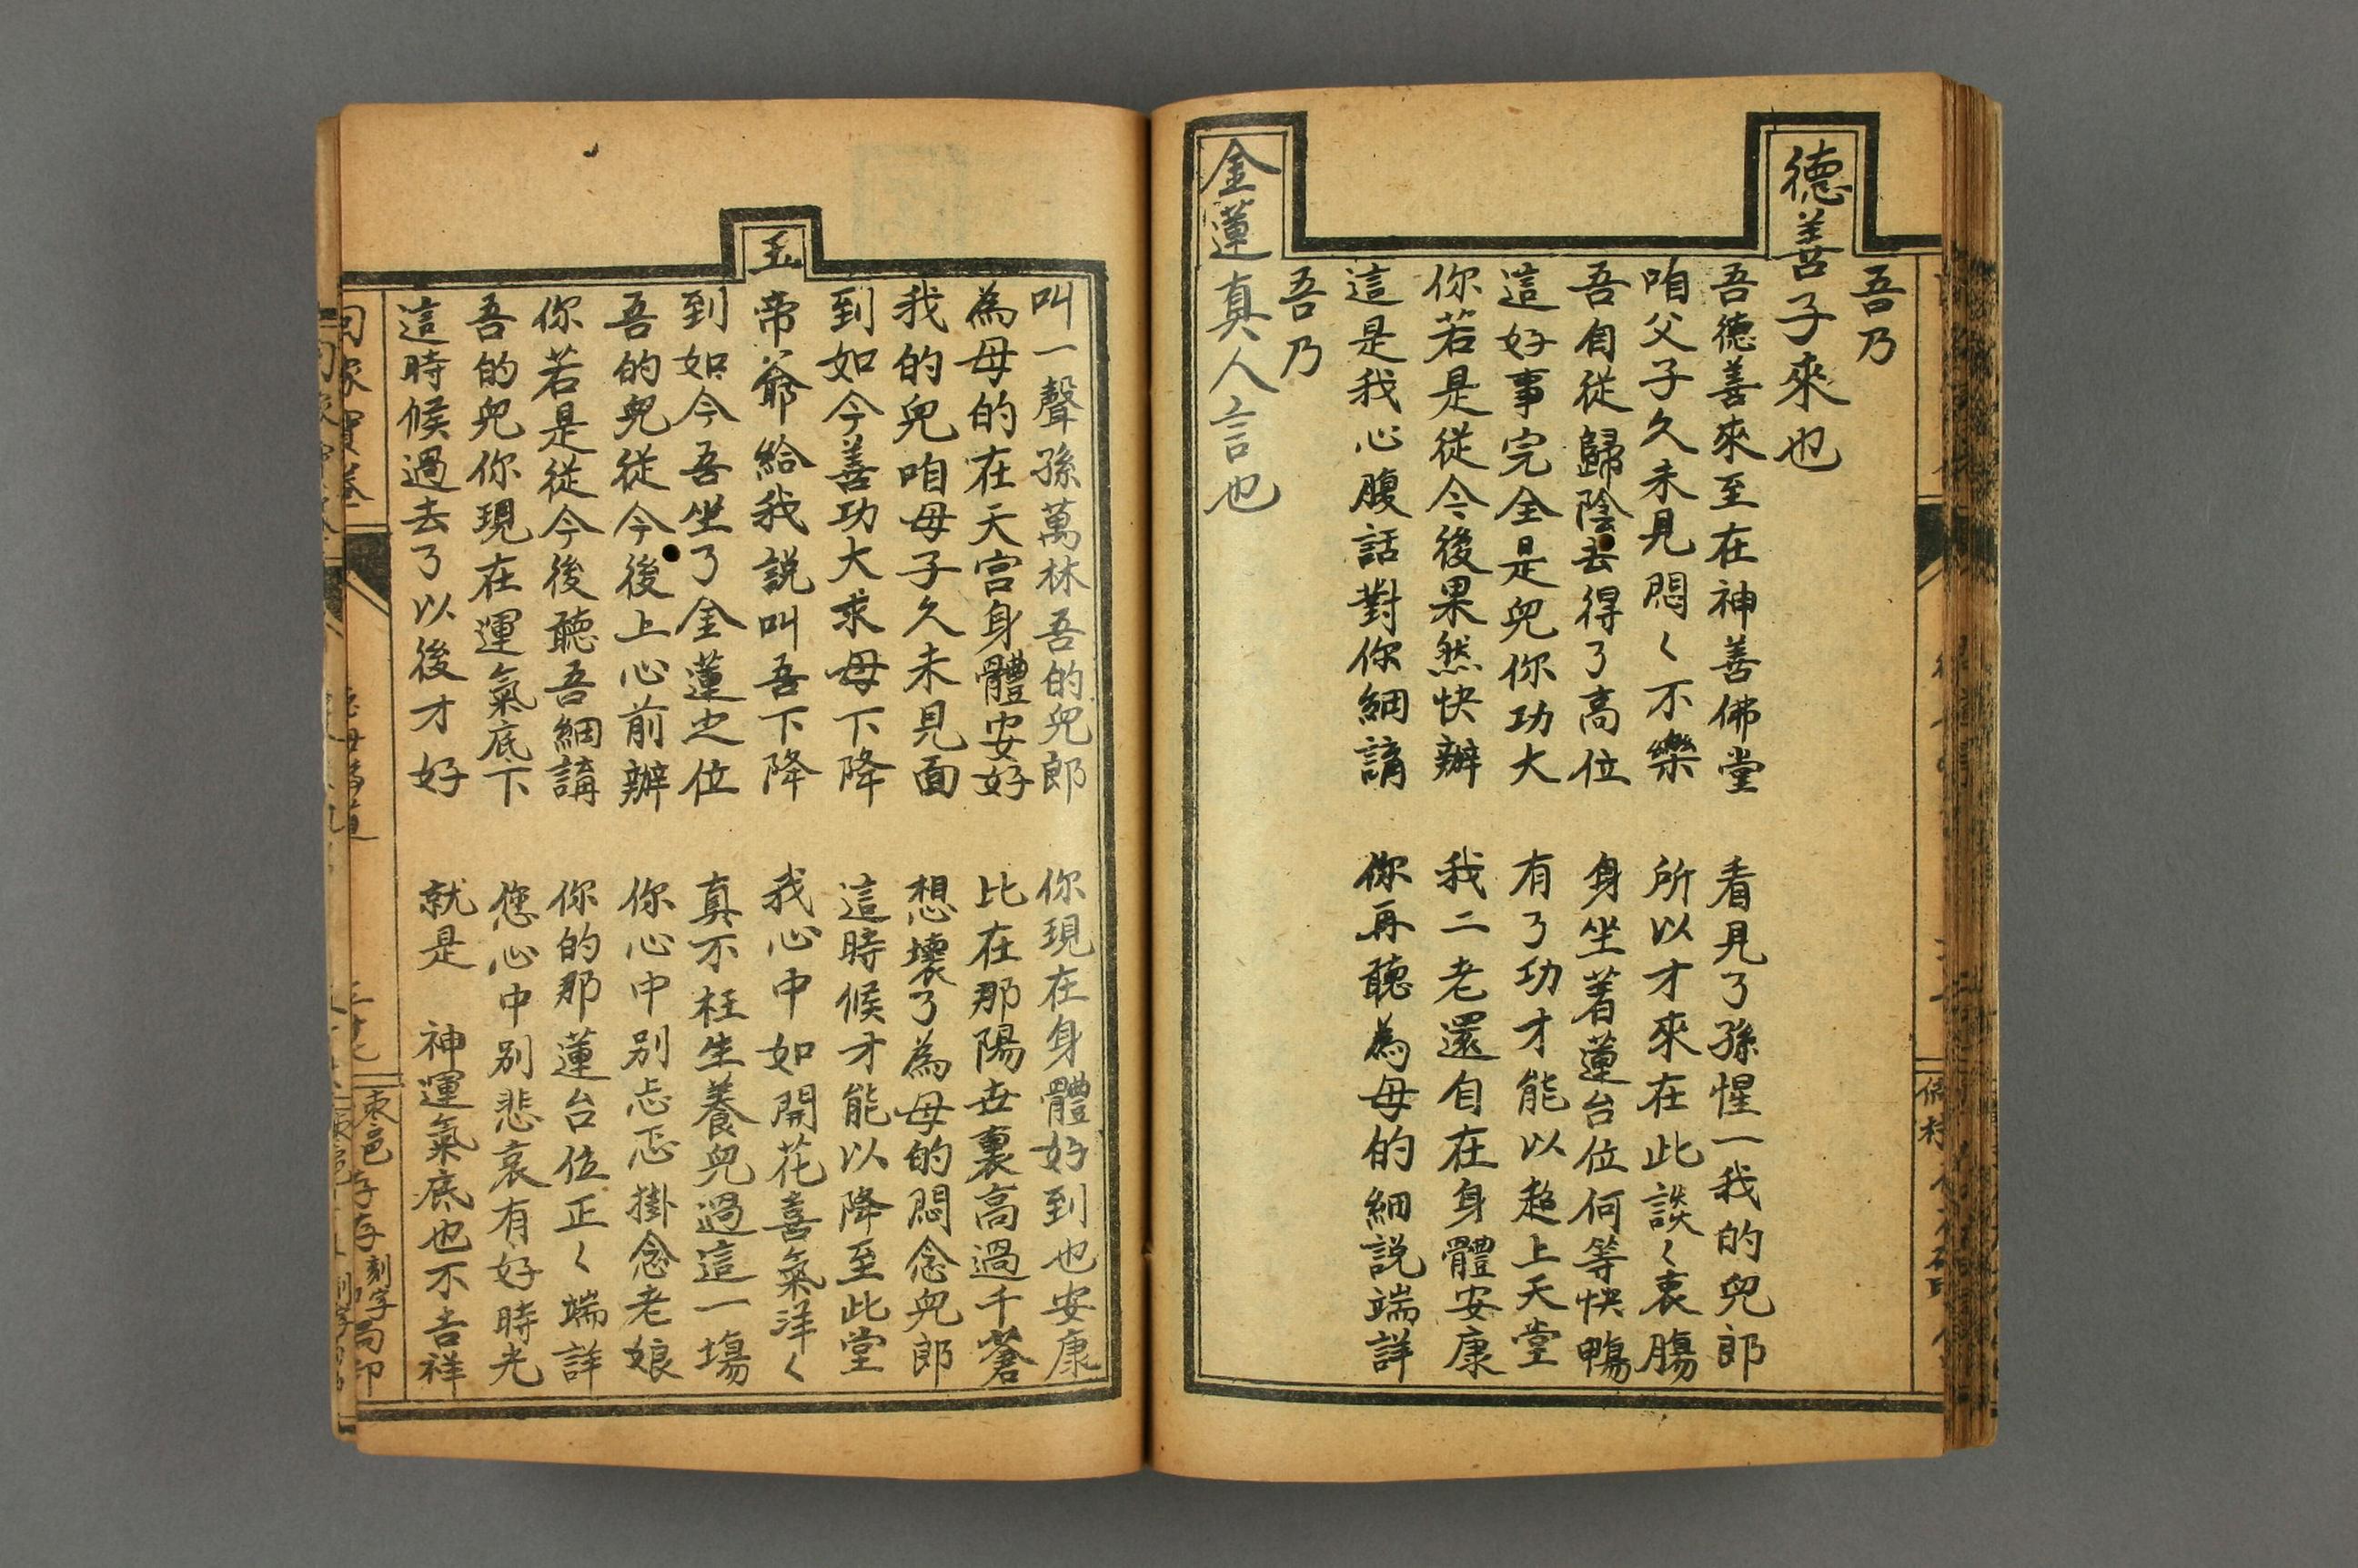 吾乃
德善子來也
吾德善來至在神善佛堂　看見了孫惺一我的兒郎
咱父子久未見悶〱不樂　所以才來在此談〱衷腸
吾自從歸陰去得了高位　身坐著蓮台位何等快暢
這好事完全是兒你功大　有了功才能以超上天堂
你若是從今後果然快辦　我二老還自在身體安康
這是我心腹話對你細講　你再聽為母的細説端詳
吾乃
金蓮真人言也
叫一聲孫萬林吾的兒郎　你現在身體好到也安康
為母的在天宮身體安好　比在那陽世裏高過千蒼
我的兒咱母子久未見面　想壞了為母的悶念兒郎
到如今善功大求母下降　這時候才能以降至此堂
玉帝爺給我説叫吾下降　我心中如開花喜氣洋〱
到如今吾坐了金蓮之位　真不枉生養兒過這一塲
吾的兒從今後上心前辦　你心中别忐忑掛念老娘
你若是從今後聽吾細講　你的那蓮台位正〱端詳
吾的兒你現在運氣底下　您心中别悲哀有好時光
這時候過去了以後才好　就是　神運氣底也不吉祥
棗邑存存刻字局印